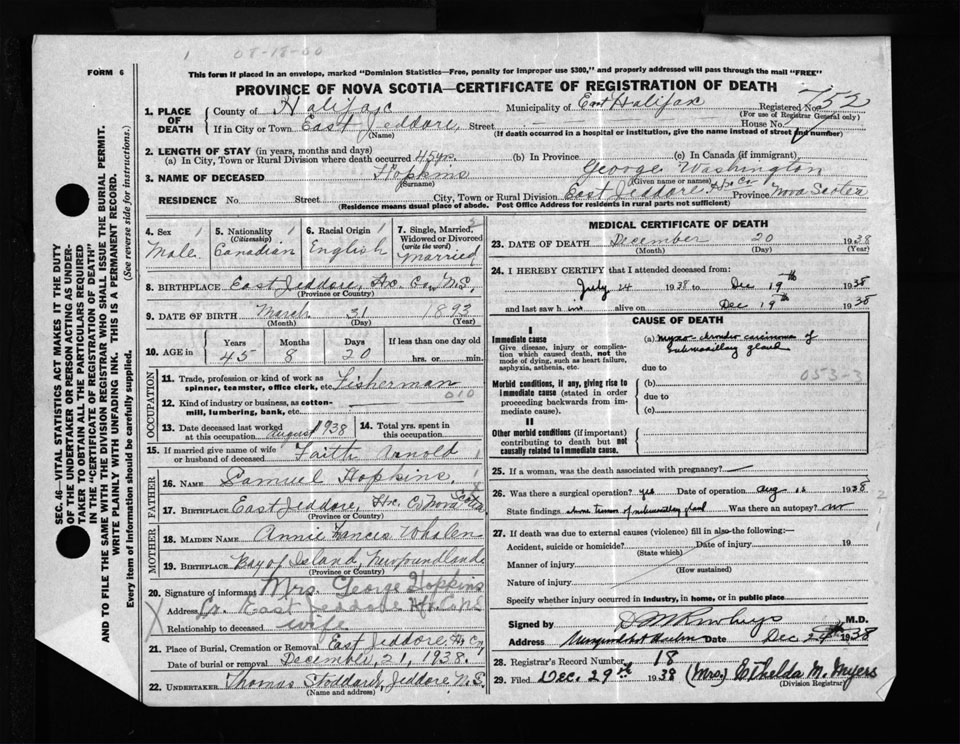 1 08-18-00
FORM 6
This form if placed in an envelope, marked "Dominion Statistics—Free, penalty for improper use $300," and properly addressed will pass through the mail "FREE"
PROVINCE OF NOVA SCOTIA—CERTIFICATE OF REGISTRATION OF DEATH
1. PLACE OF DEATH
County of Halifax Municipality of East Halifax Registered No. 752
(For use of Registrar General only)
If in City or Town East Jeddore, Street House No.
(Name) (If death occurred in a hospital or institution, give the name instead of street and number)
2. LENGTH OF STAY (in years, months and days)
(a) In City, Town or Rural Division where death occurred 45 yrs. (b) In Province (c) In Canada (if immigrant)
3. NAME OF DECEASED Hopkins George Washington
(Surname) (Given name or names)
RESIDENCE No. Street City, Town or Rural Division East Jeddore Hx Co Province Nova Scotia
(Residence means usual place of abode. Post Office Address for residents in rural parts not sufficient)
SEC. 46—VITAL STATISTICS ACT MAKES IT THE DUTY
OF THE UNDERTAKER OR PERSON ACTING AS UNDER-
TAKER TO OBTAIN ALL THE PARTICULARS REQUIRED
IN THE "CERTIFICATE OF REGISTRATION OF DEATH"
AND TO FILE THE SAME WITH THE DIVISION REGISTRAR WHO SHALL ISSUE THE BURIAL PERMIT.
WRITE PLAINLY WITH UNFADING INK. THIS IS A PERMANENT RECORD.
Every item of information should be carefully supplied. (See reverse side for instructions.)
4. Sex
Male
5. Nationality
(Citizenship)
Canadian
6. Racial Origin
English
7. Single, Married, Widowed or Divorced
(write the word)
Married
8. BIRTHPLACE East Jeddore, Hx. Co, N.S,
(Province or Country)
9. DATE OF BIRTH March 31 1893
(Month) (Day) (Year)
10. AGE in Years Months Days If less than one day old
45 8 20 hrs. or min.
OCCUPATION
11. Trade, profession or kind of work as
spinner, teamster, office clerk, etc. Fisherman
12. Kind of industry or business, as cotton-
mill, lumbering, bank, etc. 010
13. Date deceased last worked
at this occupation August 1938
14. Total yrs. spent in
this occupation
15. If married give name of wife
or husband of deceased Faith Arnold
FATHER
16. NAME Samuel Hopkins,
17. BIRTHPLACE East Jeddore, Hx. Co Nova Scotia
(Province or Country)
MOTHER
18. MAIDEN NAME Annie Frances Whalen
19. BIRTHPLACE Bay of Island, Newfoundland
(Province or Country)
20. Signature of informant Mrs. George Hopkins
Address East Jeddore
Relationship to deceased wife
21. Place of Burial, Cremation or Removal East Jeddore Hx Co,
Date of burial or removal December, 21, 1938.
22. UNDERTAKER Thomas Stoddard, Jeddore N.S.
(Name and address)
MEDICAL CERTIFICATE OF DEATH
23. DATE OF DEATH December 20 1938
(Month) (Day) (Year)
24. I HEREBY CERTIFY that I attended deceased from:
July 24 1938 to Dec 19th 1938
and last saw him alive on Dec 19th 1938
CAUSE OF DEATH
I
Immediate cause
Give disease, injury or complica-
tion which caused death, not the
mode of dying, such as heart failure,
asphyxia, asthenia, etc.
(a) myxo-chondro carcinoma of
submaxillary gland
due to
053-3
Morbid conditions, if any, giving rise to
immediate cause (stated in order
proceeding backwards from im-
mediate cause).
(b)
due to
(c)
II
Other morbid conditions (if important)
contributing to death but not
causally related to immediate cause.
25. If a woman, was the death associated with pregnancy?
26. Was there a surgical operation? yes Date of operation Aug 1938
State findings of submaxillary gland Was there an autopsy? no
27. If death was due to external causes (violence) fill in also the following:—
Accident, suicide or homicide? Date of injury 19
(State which)
Manner of injury
(How sustained)
Nature of injury
Specify whether injury occurred in industry, in home, or in public place
Signed by M.D.
Address Date Dec 24th 1938
28. Registrar's Record Number 18
29. Filed Dec. 29th 1938 (Mrs.) Ethelda M. Myers
(Division Registrar)